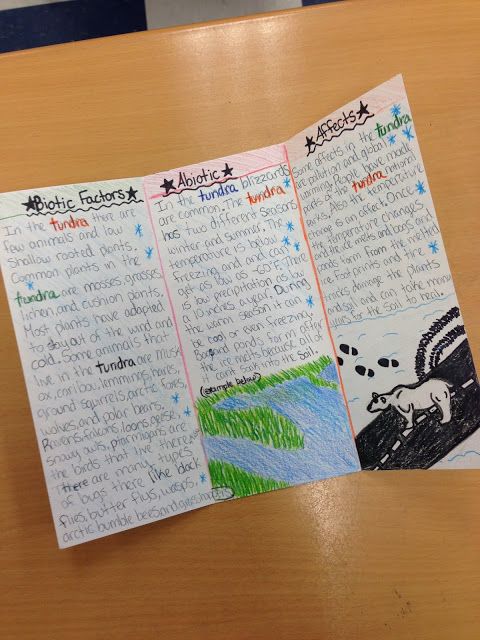 ★Biotic Factors★
In the tundra there are
few animals and low
shallow rooted plants.
Common plants in the
tundra are mosses, grasses,
lichen and cushion plants.
Most plants have adapted
to stay out of the wind and
cold. Some animals that
live in the tundra are musk
ox, caribou, lemmings, hares,
ground squirrels, arctic foxes,
wolves and polar bears.
Ravens, falcons, loons, geese,
snowy owls, ptarmigans are
the birds that live there
there are many types
of bugs there like black
flies, butter flys, wasps,
arctic bumble bees and grasshoppers
★Abiotic★
In the tundra blizzards
are common. The tundra
has two different seasons
winter and summer. The
temperature is below
freezing and and can
get as low as -60°F. There
is low precipitation as low
a 10 inches a year. During
the warm season it can
be cool or even freezing.
Bogs and ponds form after
the ice melts because all of
it cant soak into the soil.
(example below)
★Affects★
Some affects in the tundra
are pollution and global
warming. People have made
parts of the tundra national
parks. Also the temperature
change is an affect. Once
the temperature changes
and the ice melts and bogs and
ponds form from the melted
ice. Foot prints and tire
tracks damage the plants
and soil and can take many
years for the soil to heal.